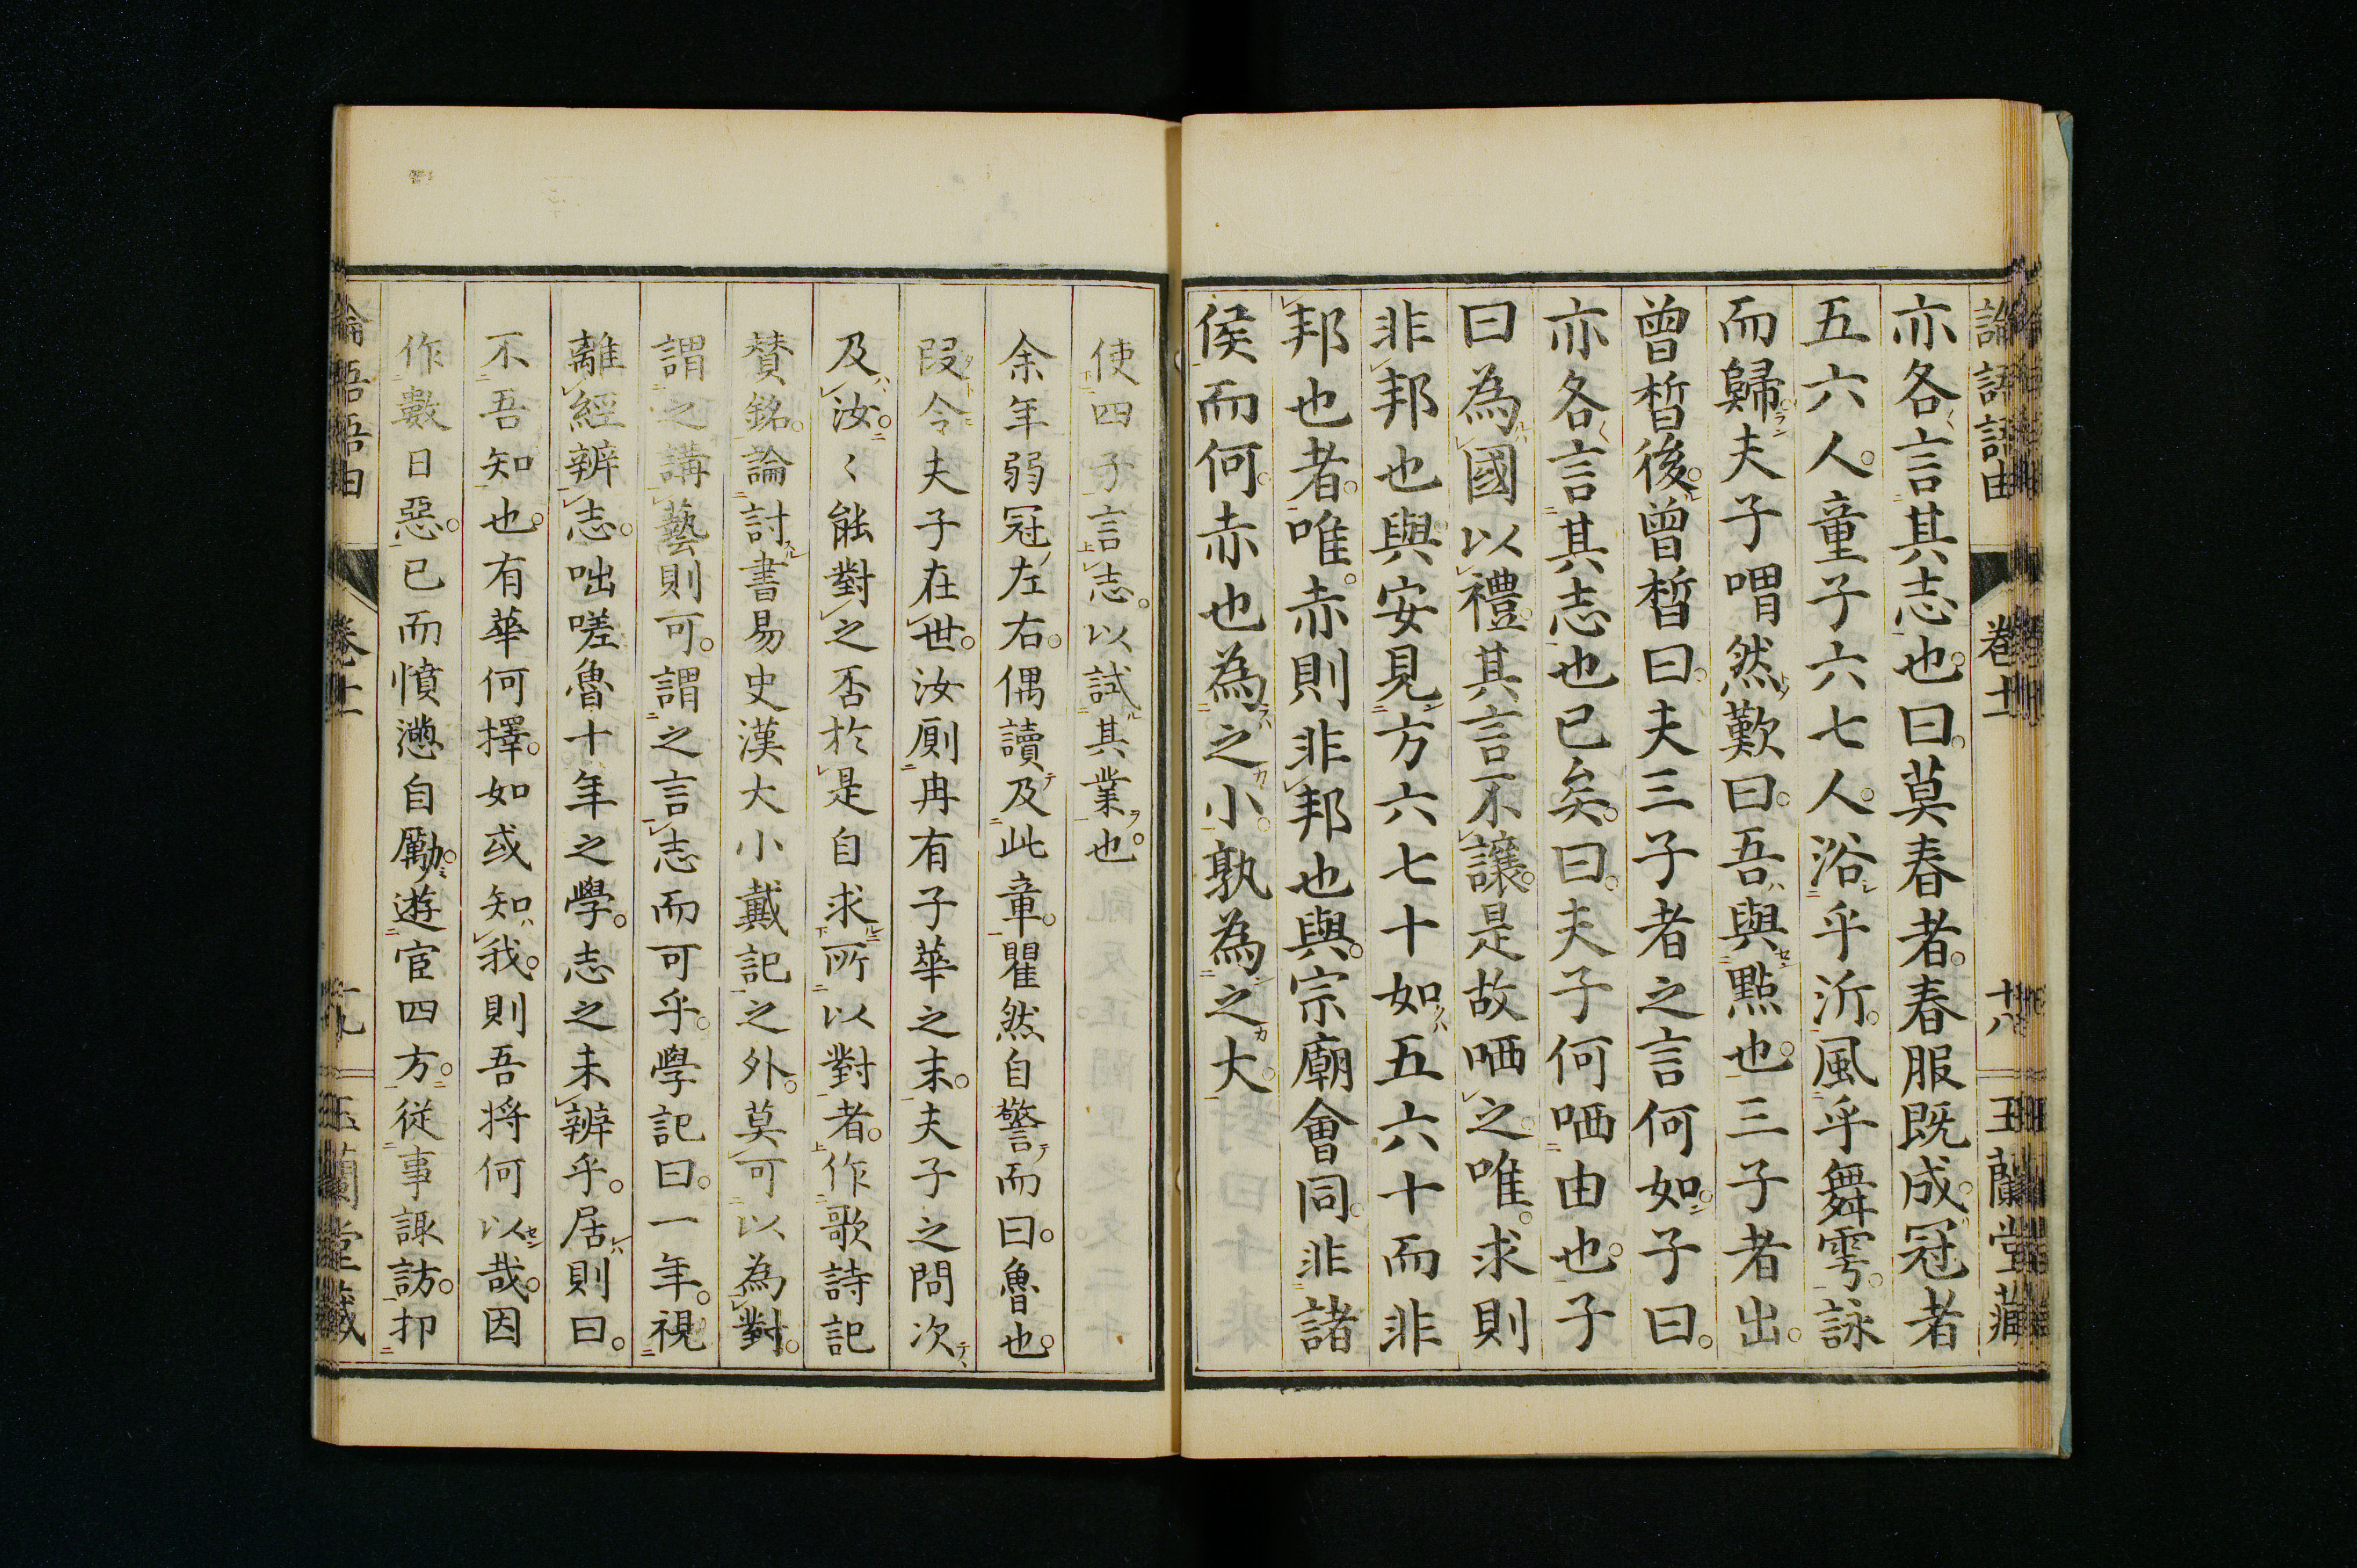 論語語由 卷十一 十八 玉蘭堂藏
亦各言其志也。曰。莫春者。春服既成。冠者
五六人。童子六七人。浴乎沂。風乎舞雩。詠
而歸。夫子喟然歎曰。吾與點也。三子者出。
曾晳後。曾晳曰。夫三子者之言何如。子曰。
亦各言其志也已矣。曰。夫子何哂由也。子
曰為國以禮。其言不讓。是故哂之。唯。求則
非邦也與安見方六七十如五六十而非
邦也者。唯。赤則非邦也與。宗廟會同。非諸
侯而何。赤也為之小。孰為之大。
使四子言志。以試其業也。
余年弱冠左右。偶讀及此章。瞿然自警而曰。魯也。
叚令夫子在世。汝厠冉有子華之末。夫子之問次
及汝。〻能對之否於是自求所以對者。作歌詩記
賛銘。論討書易史漢大小戴記之外。莫可以為對。
謂之講藝則可。謂之言志而可乎。學記曰。一年。視
離經辨志。咄嗟魯十年之學。志之未辨乎。居則曰。
不吾知也。有華何擇。如或知我。則吾將何以哉。因
作數日惡。已而憤懣自勵。遊宦四方。從事諏訪。卬
論語語由 卷十一 十九 玉蘭堂藏